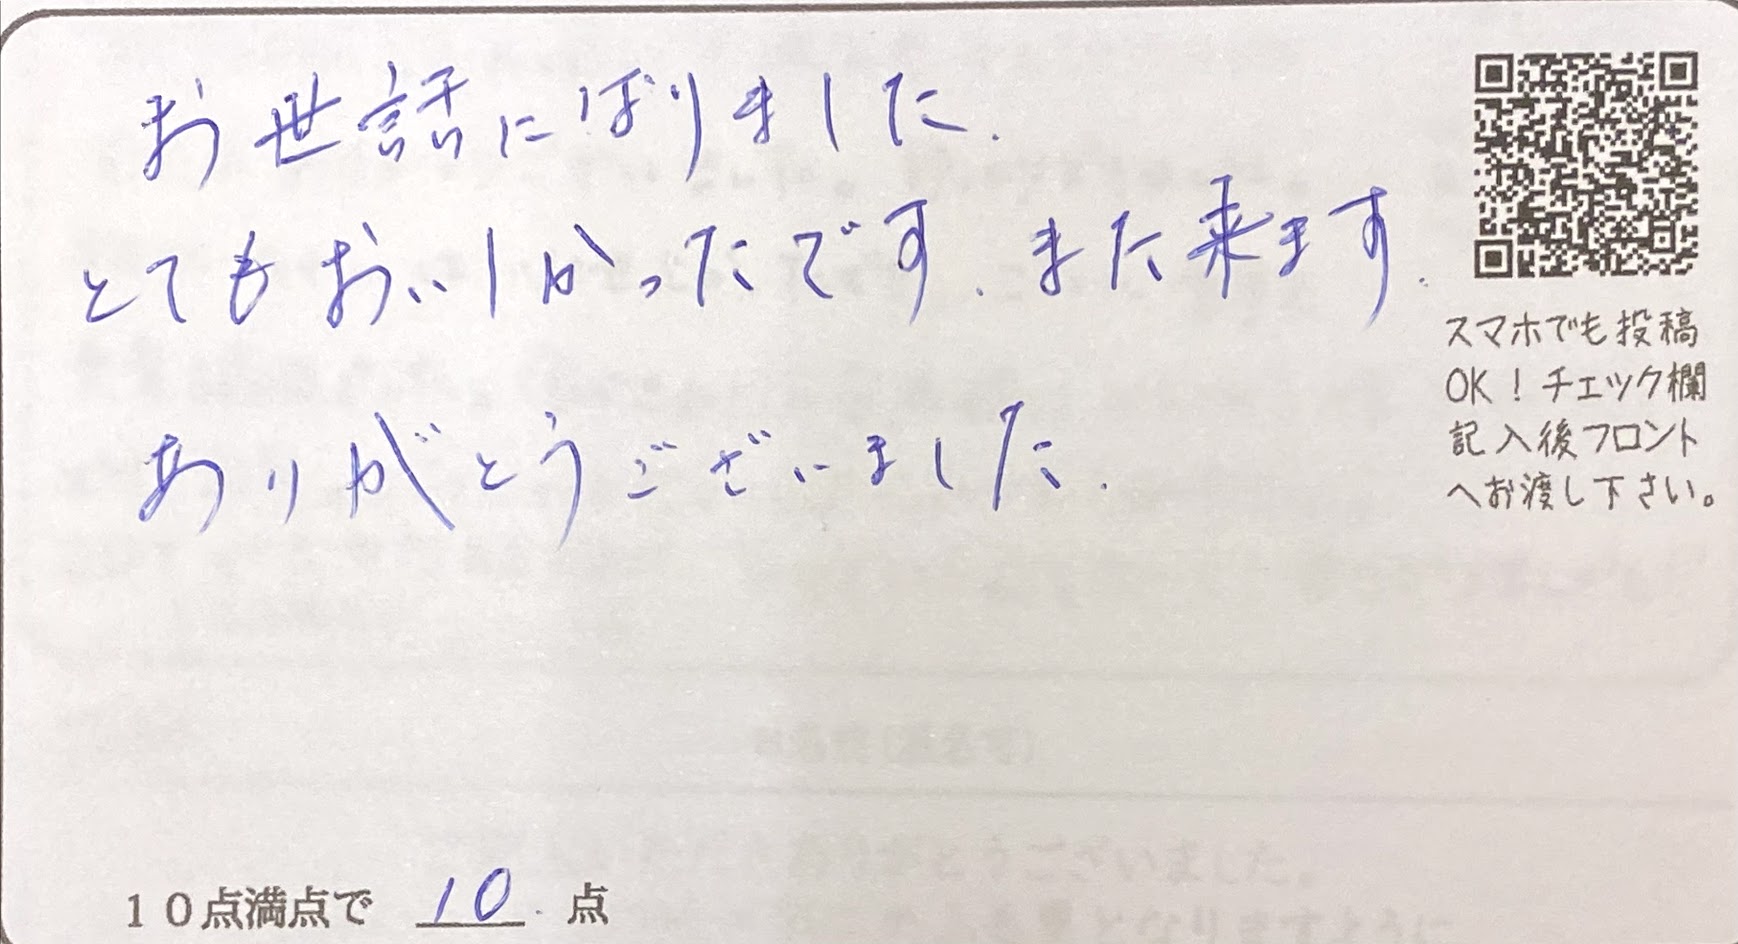 お世話になりました.
とてもおいしかったです.また来ます.
ありがとうございました.
スマホでも投稿
OK！チェック欄
記入後フロント
へお渡し下さい。
10点満点で 10. 点